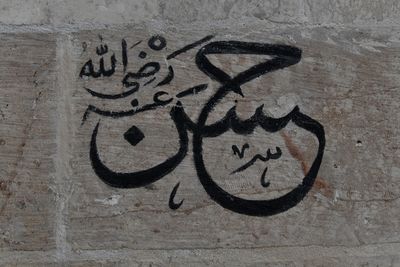 حسن رَضِيَ الله عنه